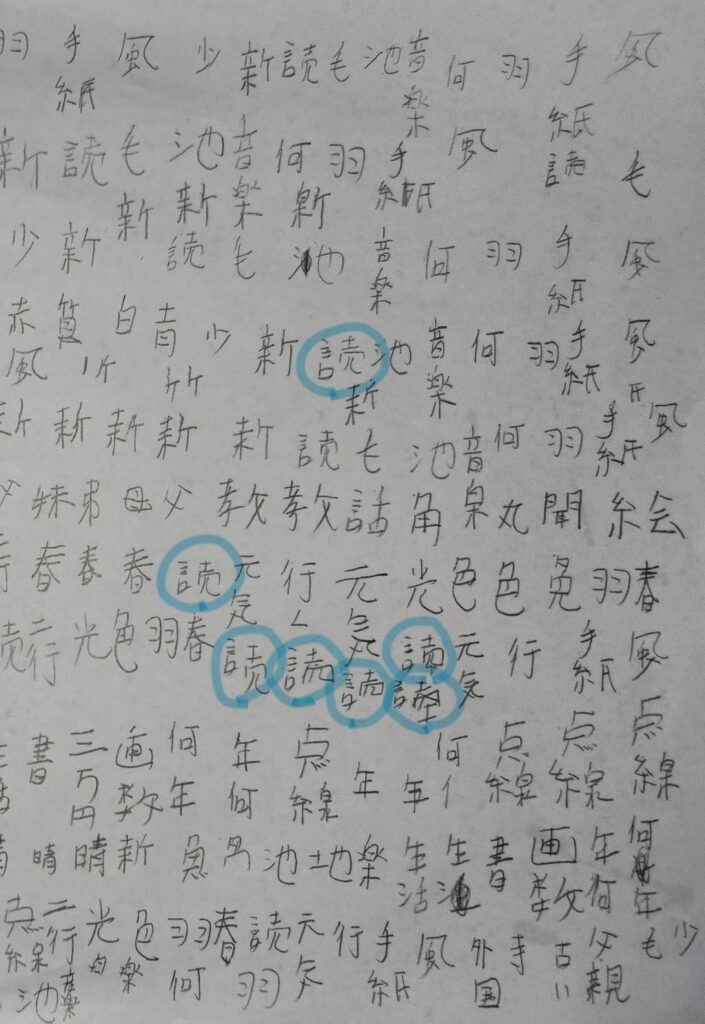 風 手紙 羽 何 音楽 池 毛 読 新 少 風 手紙 羽
毛 読 風 手紙 羽 何 音楽 新 池 新 毛 新 読 新
風 手紙 羽 何 音楽 池 毛 読 新 少
風 手紙 羽 何 音楽 池 読 新 新 少 青 白 赤 風
風 手紙 羽 何 音楽 池 毛 読 新 新 新 新 新
絵 聞 丸 角 話 教 教 父 母 弟 妹 父
春 羽 色 色 光 元気 行く 元気 読 春 春 春 行
風 手紙 行 元気 読 読 読 読 読 春 羽 色 光 二行 読
点線 点線 点線 何 年 年 点線 年何 何年 画数 三万円 書 生活
何年 年何 画数 書 生活 生 楽 地 池 魚 新 晴 晴
少 毛 父親 古い 手 外国 風 手紙 行 元気 読 羽 春 羽 何 色 光 二行 点線 池